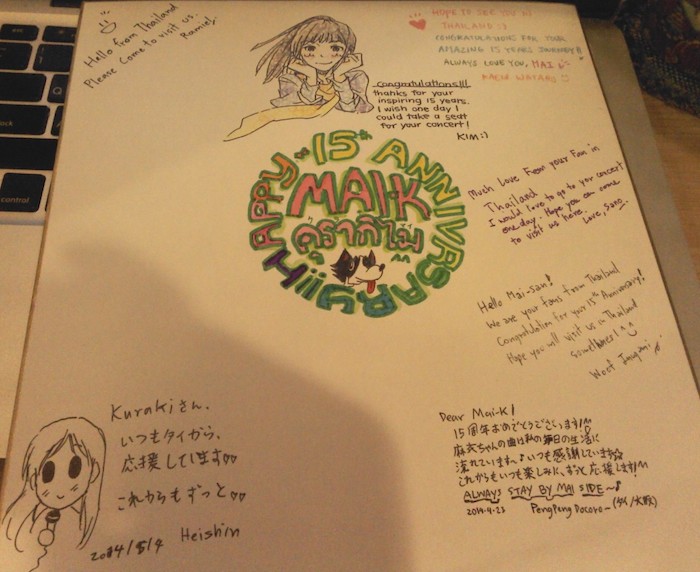 Hello from Thailand
Please Come to visit us.
HOPE TO SEE YOU IN
THAILAND :)
CONGRATULATIONS FOR YOUR
AMAZING 15 YEARS JOURNEY!!
ALWAYS LOVE YOU, MAI
KAEW WATARU
Congratulations!!!
thanks for your
inspiring 15 years.
I wish one day I
could take a seat
for your concert!
KIM:)
HAPPY 15th ANNIVRSARY
MAI-K
คุรากิไม
Much Love From your Fan in
Thailand
I would love to go to your concert
one day. Hope you can come
to visit us here.
Love, Sano
Hello Mai-san!
We are your fans from Thailand
Congratulation for your 15th Anniversary!
Hope you will visit us in Thailand
sometimes!
Woof
Kurakiさん、
いつもタイから、
応援しています♡♡
これからもずっと♡♡
2014/5/4 Heishin
Dear Mai-K!
15周年おめでとうございます!
麻衣ちゃんの曲は私の毎日の生活に
流れています〜♪いつも感謝しています☆
これからもいつも楽しみに、ずっと応援します!
ALWAYS STAY BY MAI SIDE〜♪
2014.4.23 PengPeng Docoro~(タイ/大阪)
control